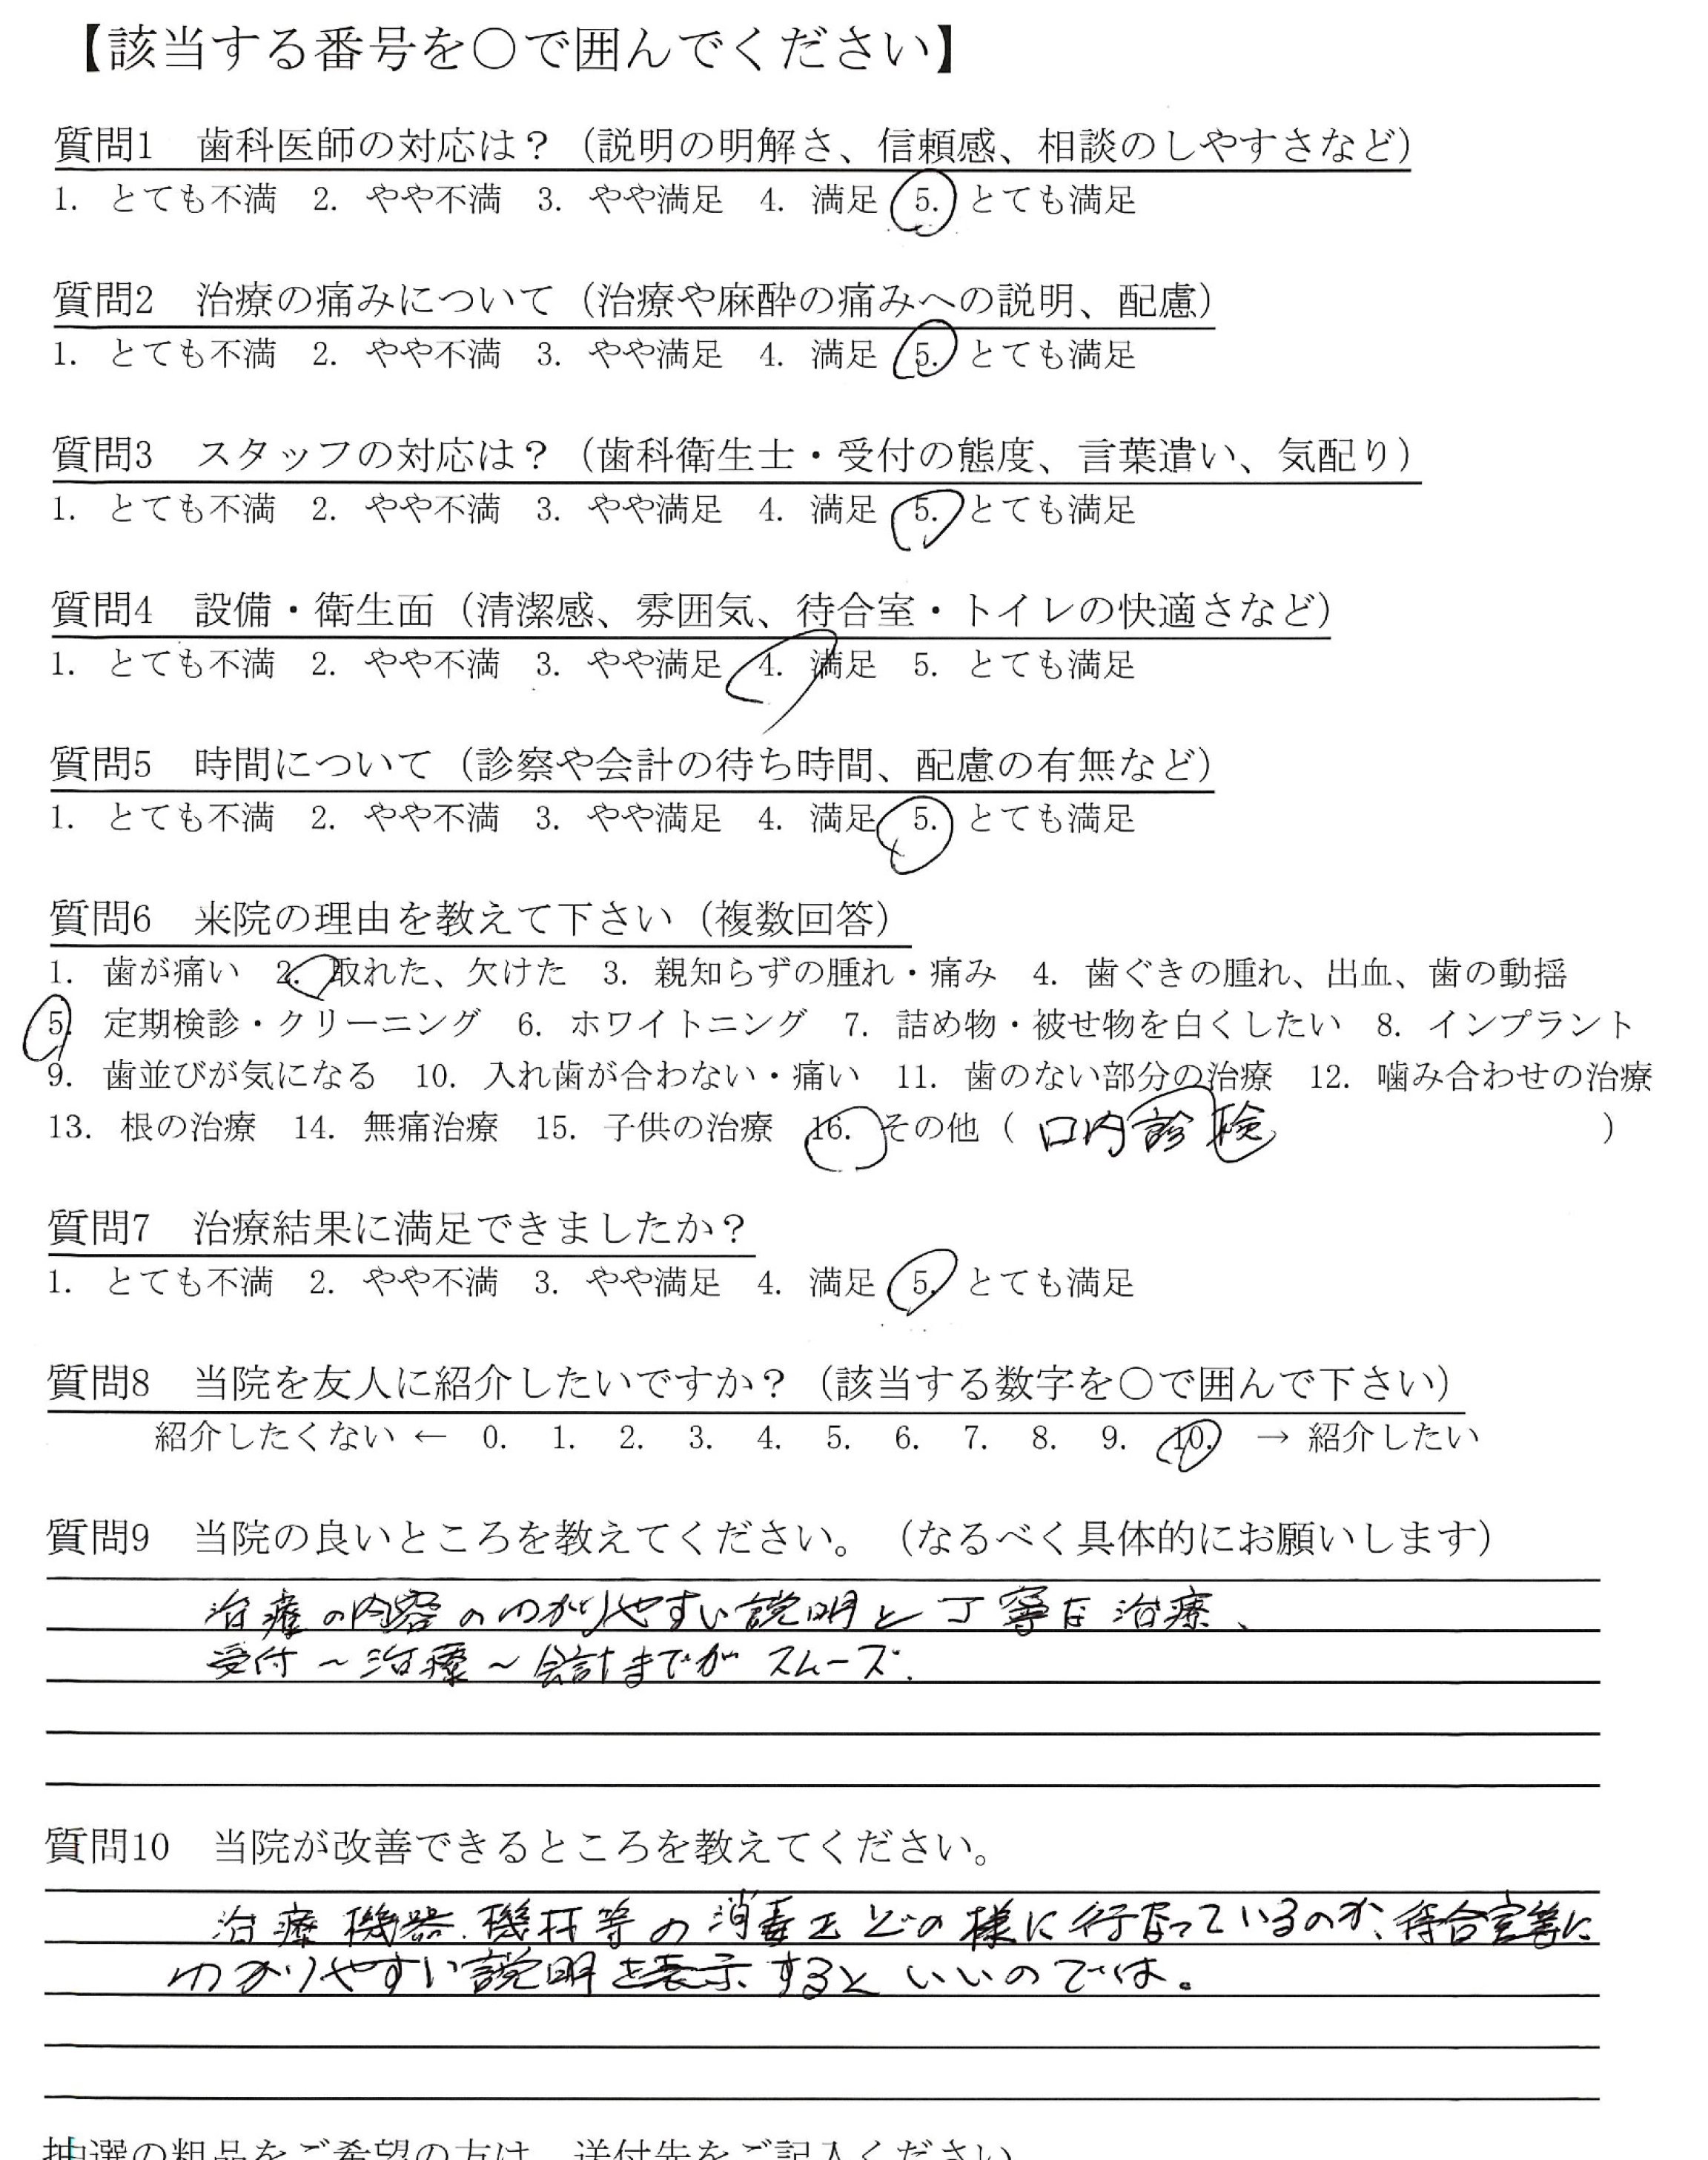 【該当する番号を○で囲んでください】
質問1　歯科医師の対応は？（説明の明解さ、信頼感、相談のしやすさなど）
1. とても不満　2. やや不満　3. やや満足　4. 満足　5. とても満足
質問2　治療の痛みについて（治療や麻酔の痛みへの説明、配慮）
1. とても不満　2. やや不満　3. やや満足　4. 満足　5. とても満足
質問3　スタッフの対応は？（歯科衛生士・受付の態度、言葉遣い、気配り）
1. とても不満　2. やや不満　3. やや満足　4. 満足　5. とても満足
質問4　設備・衛生面（清潔感、雰囲気、待合室・トイレの快適さなど）
1. とても不満　2. やや不満　3. やや満足　4. 満足　5. とても満足
質問5　時間について（診察や会計の待ち時間、配慮の有無など）
1. とても不満　2. やや不満　3. やや満足　4. 満足　5. とても満足
質問6　来院の理由を教えて下さい（複数回答）
1. 歯が痛い　2. 取れた、欠けた　3. 親知らずの腫れ・痛み　4. 歯ぐきの腫れ、出血、歯の動揺
5. 定期検診・クリーニング　6. ホワイトニング　7. 詰め物・被せ物を白くしたい　8. インプラント
9. 歯並びが気になる　10. 入れ歯が合わない・痛い　11. 歯のない部分の治療　12. 噛み合わせの治療
13. 根の治療　14. 無痛治療　15. 子供の治療　16. その他（ 口内診検 ）
質問7　治療結果に満足できましたか？
1. とても不満　2. やや不満　3. やや満足　4. 満足　5. とても満足
質問8　当院を友人に紹介したいですか？（該当する数字を○で囲んで下さい）
紹介したくない ← 0. 1. 2. 3. 4. 5. 6. 7. 8. 9. 10. → 紹介したい
質問9　当院の良いところを教えてください。（なるべく具体的にお願いします）
治療の内容のわかりやすい説明と丁寧な治療、
受付～治療～会計までがスムーズ.
質問10　当院が改善できるところを教えてください。
治療機器.機材等の消毒をどの様に行なっているのか、待合室等に
わかりやすい説明を表示するといいのでは。
抽選の粗品をご希望の方は、送付先をご記入ください